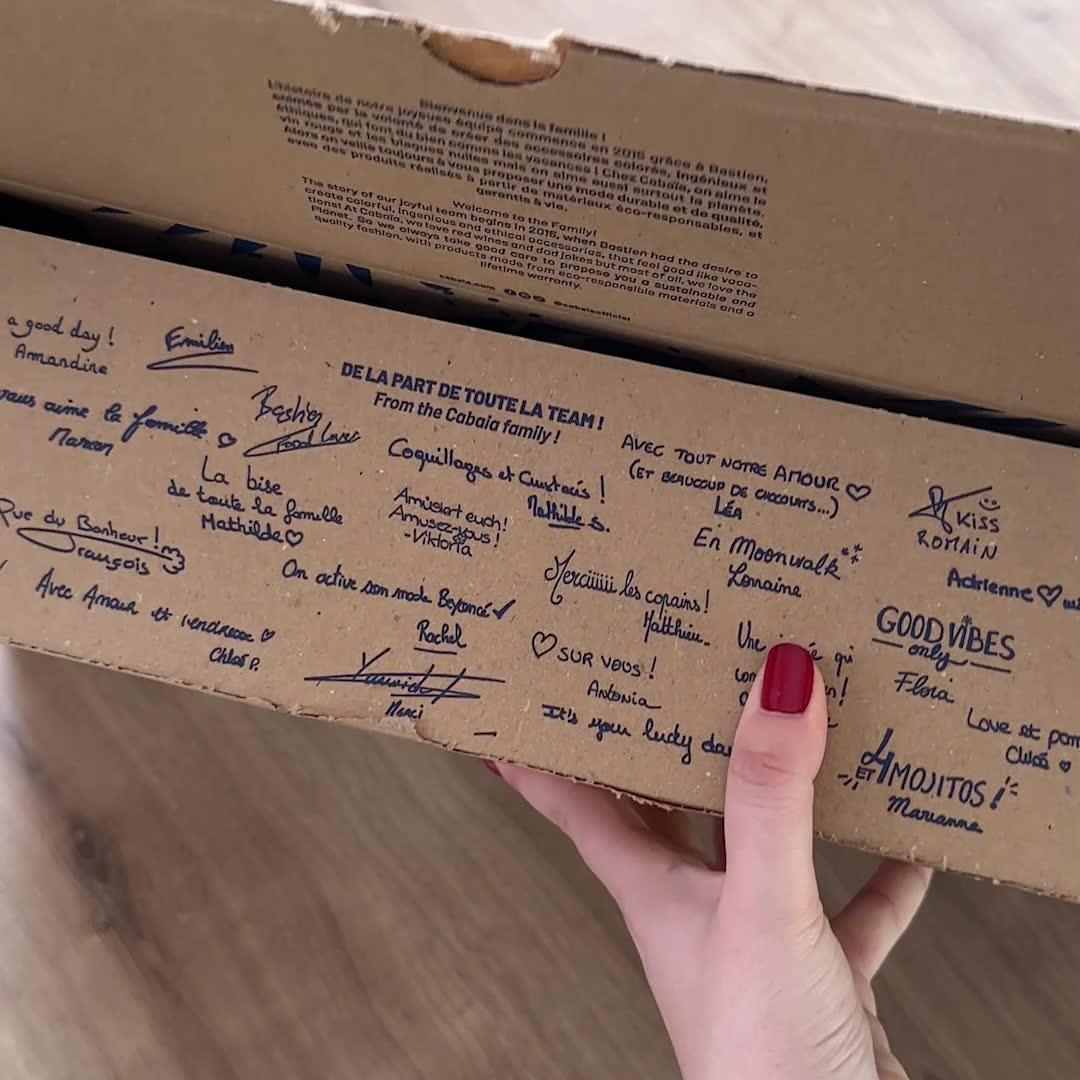 Bienvenue dans la famille !
L'histoire de notre joyeuse équipe commence en 2015 grâce à Bastien,
animée par la volonté de créer des accessoires colorés, ingénieux et
éthiques, qui font du bien comme les vacances ! Chez Cabaïa, on aime le
vin rouge et les blagues nulles mais on aime aussi surtout la planète.
Alors on veille toujours à vous proposer une mode durable et de qualité,
avec des produits réalisés à partir de matériaux éco-responsables, et
garantis à vie.
Welcome to the Family!
The story of our joyful team begins in 2015, when Bastien had the desire to
create colorful, ingenious and ethical accessories, that feel good like vaca-
tions! At Cabaïa, we love red wines and dad jokes but most of all, we love the
Planet. So we always take good care to propose you a sustainable and
quality fashion, with products made from eco-responsible materials and a
lifetime warranty.
cabaia.com @cabaiaofficial
DE LA PART DE TOUTE LA TEAM !
From the Cabaia family !
a good day !
Amandine
Emilien
vous aime la famille
Marion
Bastien
Food Lover
La bise
de toute la famille
Mathilde
Rue du Bonheur !
François
Avec Amour et tendresse
Chloé P.
Coquillages et Crustacés !
Mathilde S.
Amüsiert euch!
Amusez-vous !
-Viktoria
On active son mode Beyoncé
Rachel
Merci
AVEC TOUT NOTRE AMOUR
(ET BEAUCOUP DE CHOCOLATS...)
LÉA
En Moonwalk
Lorraine
Merciiiiii les copains !
Matthieu
SUR VOUS !
Antonia
It's your lucky
Une qi
KISS
ROMAIN
Adrienne
GOOD VIBES
only
Flora
Love et
Chloé
ET 4 MOJITOS !
Marianne